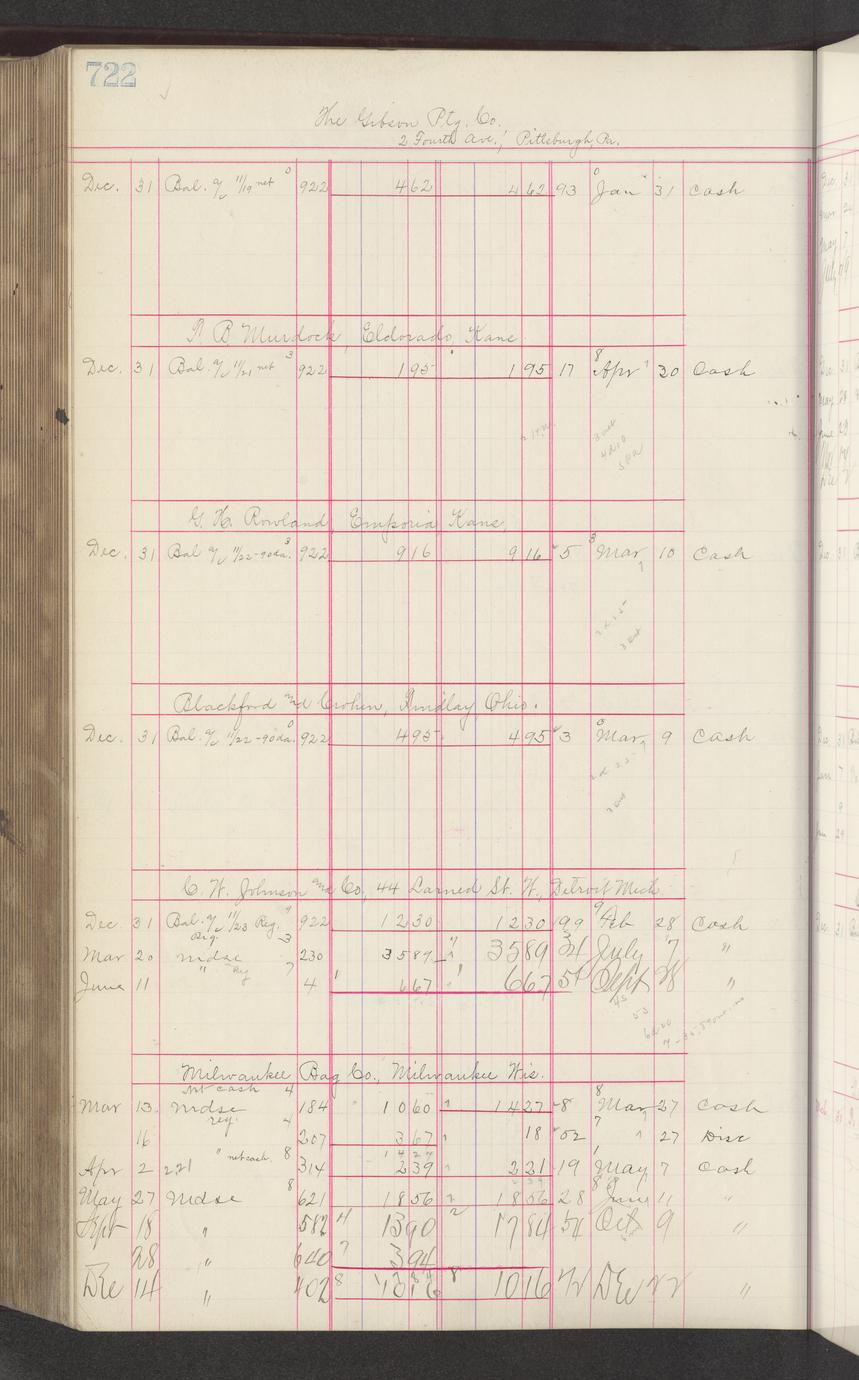 722
The Gibson Ptg. Co.
2 Fourth Ave., Pittsburgh, Pa.
Dec. 31 Bal. a/c 11/19 net 0 922 462 462 93 0 Jan 31 Cash
Murdock, Eldorado, Kans.
Dec. 31 Bal. a/c 11/21 net 3 922 195 195 17 8 Apr 30 Cash
G. H. Rowland, Emporia, Kans.
Dec. 31 Bal a/c 11/22-90da. 3 922 916 916 5 3 Mar 10 Cash
Blackford and Crohen, Findlay, Ohio.
Dec. 31 Bal. a/c 11/22-90da. 0 922 495 495 3 0 Mar 9 Cash
C. W. Johnson and Co., 44 Larned St. W., Detroit Mich
Dec. 31 Bal. a/c 11/23 Reg. 9 922 1230 1230 99 9 Feb 28 Cash
Mar 20 Mdse Reg. 3 230 3589 3589 34 July 7 "
June 11 " Reg 7 4 667 667 51 Sept 28 "
Milwaukee Bag Co., Milwaukee Wis.
Mar 13 Mdse Net cash 4 184 1060 1427 8 8 Mar 27 Cash
16 reg. 4 207 367 18 52 7 " 27 Disc
1427
Apr 2 221 " net cash 8 314 239 221 19 1 May 7 Cash
May 27 Mdse 8 621 1856 1856 28 8 June 11 "
Sept 18 " 582 4 1390 1784 54 Oct 9 "
28 " 640 7 394
Dec 14 " 402 8 1016 8 1016 72 Dec 22 "